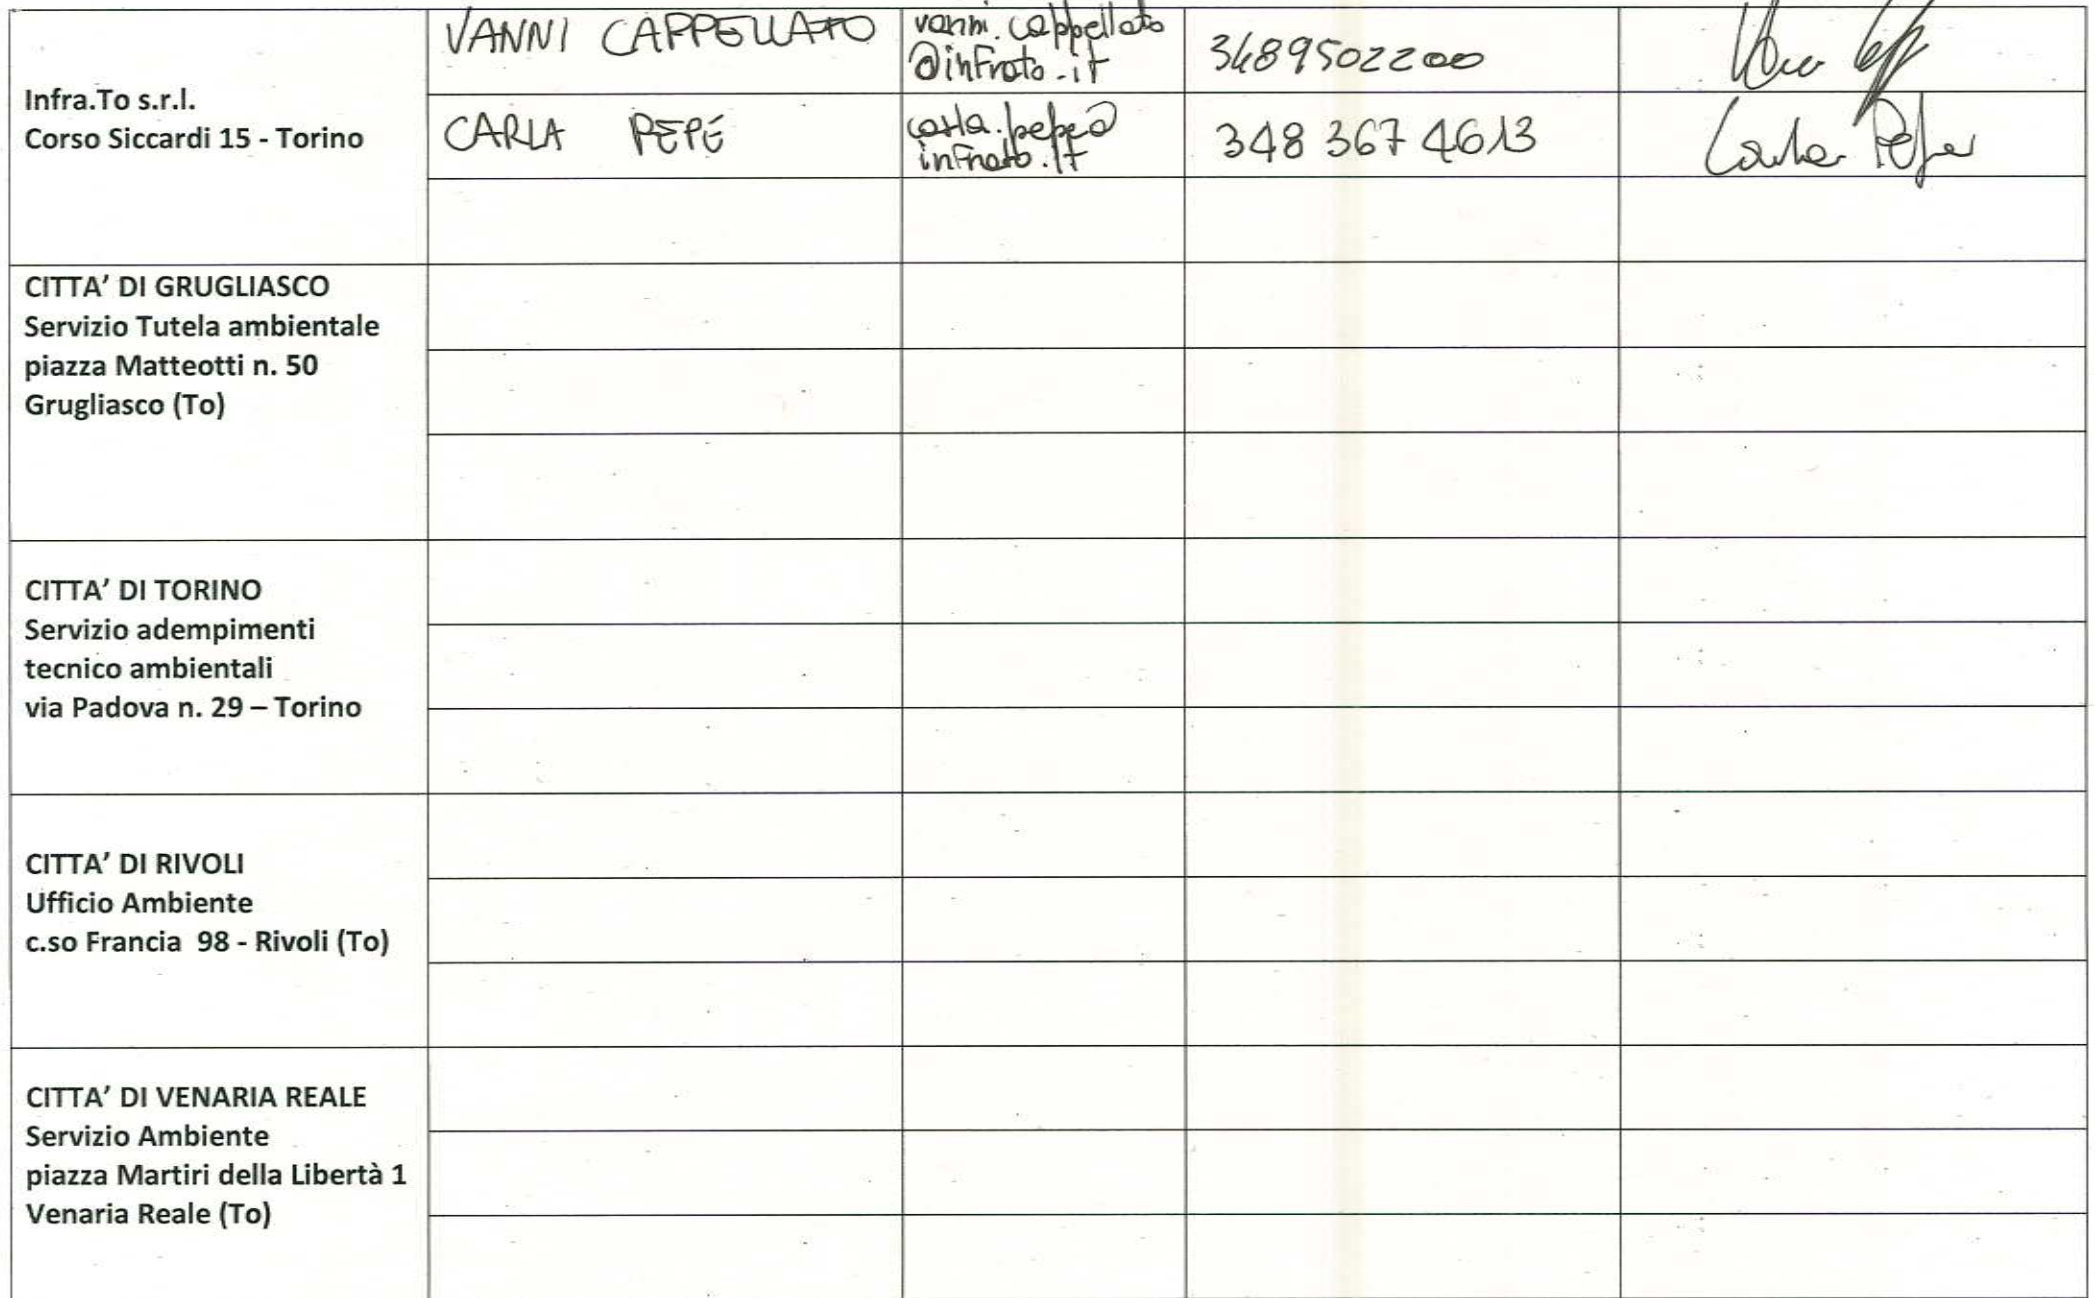 Infra.To s.r.l.
Corso Siccardi 15 - Torino
VANNI CAPPELLATO
vanni.cappellato
@infrato.it
3489502200
CARLA PEPE
carla.pepe@
infrato.it
348 367 4613
Carla Pepe
CITTA' DI GRUGLIASCO
Servizio Tutela ambientale
piazza Matteotti n. 50
Grugliasco (To)
CITTA' DI TORINO
Servizio adempimenti
tecnico ambientali
via Padova n. 29 – Torino
CITTA' DI RIVOLI
Ufficio Ambiente
c.so Francia 98 - Rivoli (To)
CITTA' DI VENARIA REALE
Servizio Ambiente
piazza Martiri della Libertà 1
Venaria Reale (To)